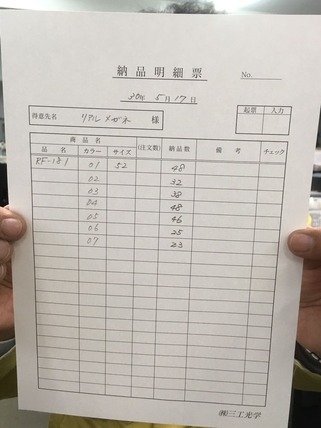 納品明細票
No.
30年 5月 17日
起票 入力
得意先名 リアルメガネ 様
商品名 (注文数) 納品数 備考 チェック
品名 カラー サイズ
RF-181 01 52 48
02 32
03 38
04 48
05 46
06 25
07 23
㈱三工光学